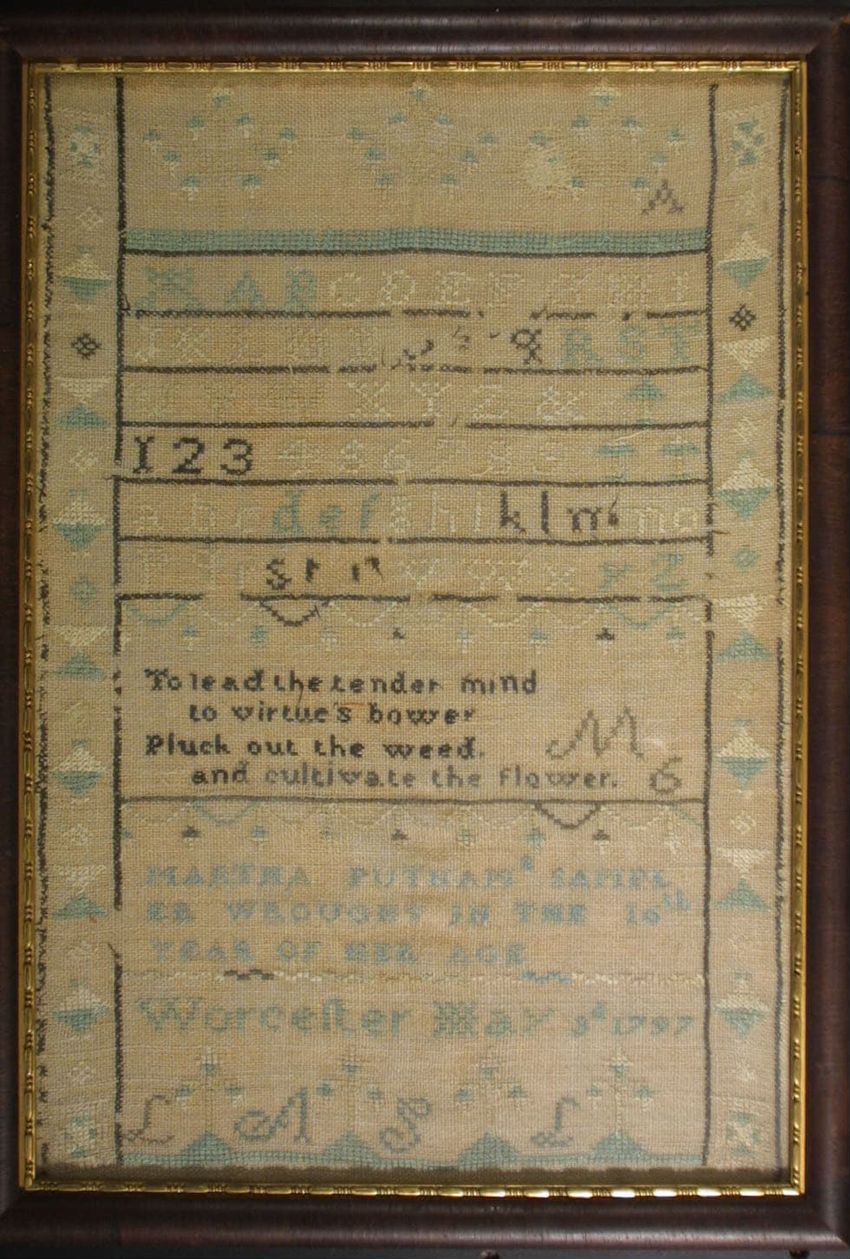 A
A B C D E F G H I
Q R S T
X Y Z &
1 2 3 4 5 6 7 8 9
a b c d e f g h i k l m n o
s t u v w x y z
To lead the tender mind
to virtue's bower
Pluck out the weed.
and cultivate the flower.
M
6
MARTHA PUTNAMS SAMPL
ER WROUGHT IN THE 10th
YEAR OF HER AGE
Worceſter May 3d 1797
L A P L